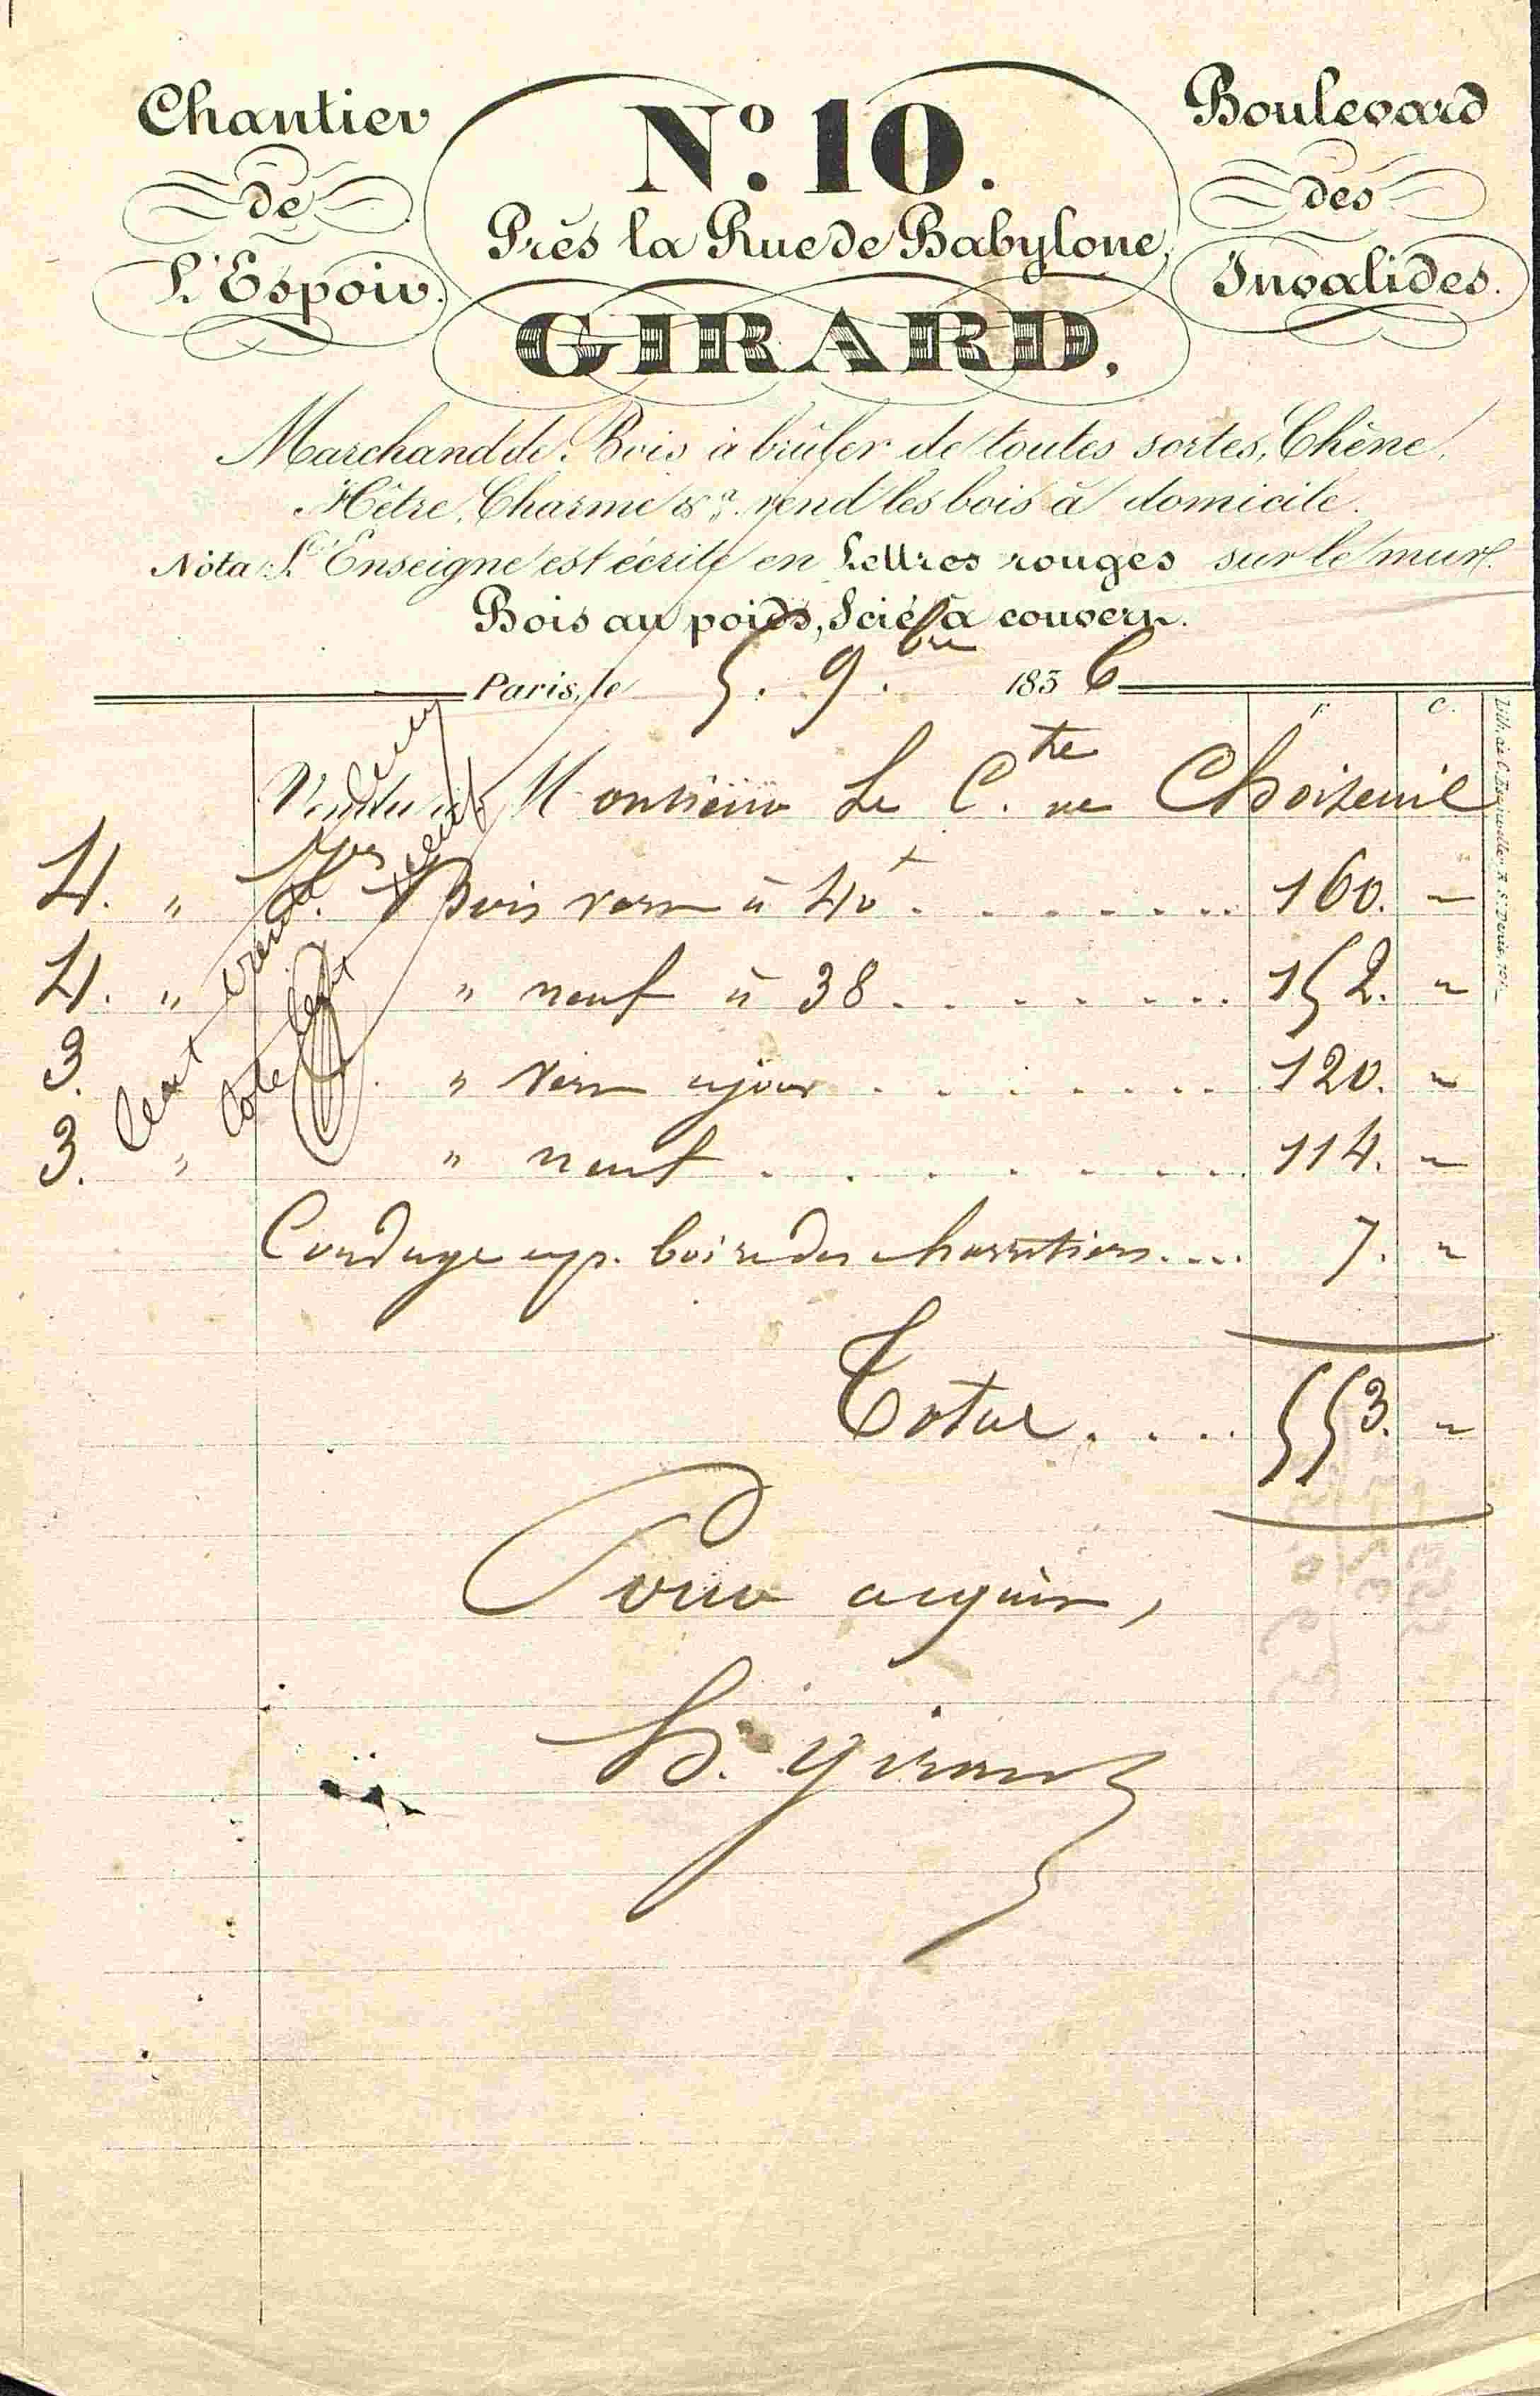 Chantier
de
L'Espoir.
N.º 10.
Près la Rue de Babylone,
GIRARD,
Boulevard
des
Invalides.
Marchand de Bois à brûler de toutes sortes, Chêne,
Hêtre, Charme &ª. rend les bois à domicile.
Nota: L'Enseigne est écrite en Lettres rouges sur le mur.
Bois au poids, Scié à couvert.
Paris, le 5. 9.bre 1836
F. C.
Vendu à Monsieur Le C.te de Choiseuil
4. " Bois à 40f 160. "
4. " " neuf à 38 152. "
3. " 120. "
3. " " neuf 114. "
Cordage boire des charretiers 7. "
Total 553. "
Pour acquit,
girard
Cent trente
Cote cent neuf